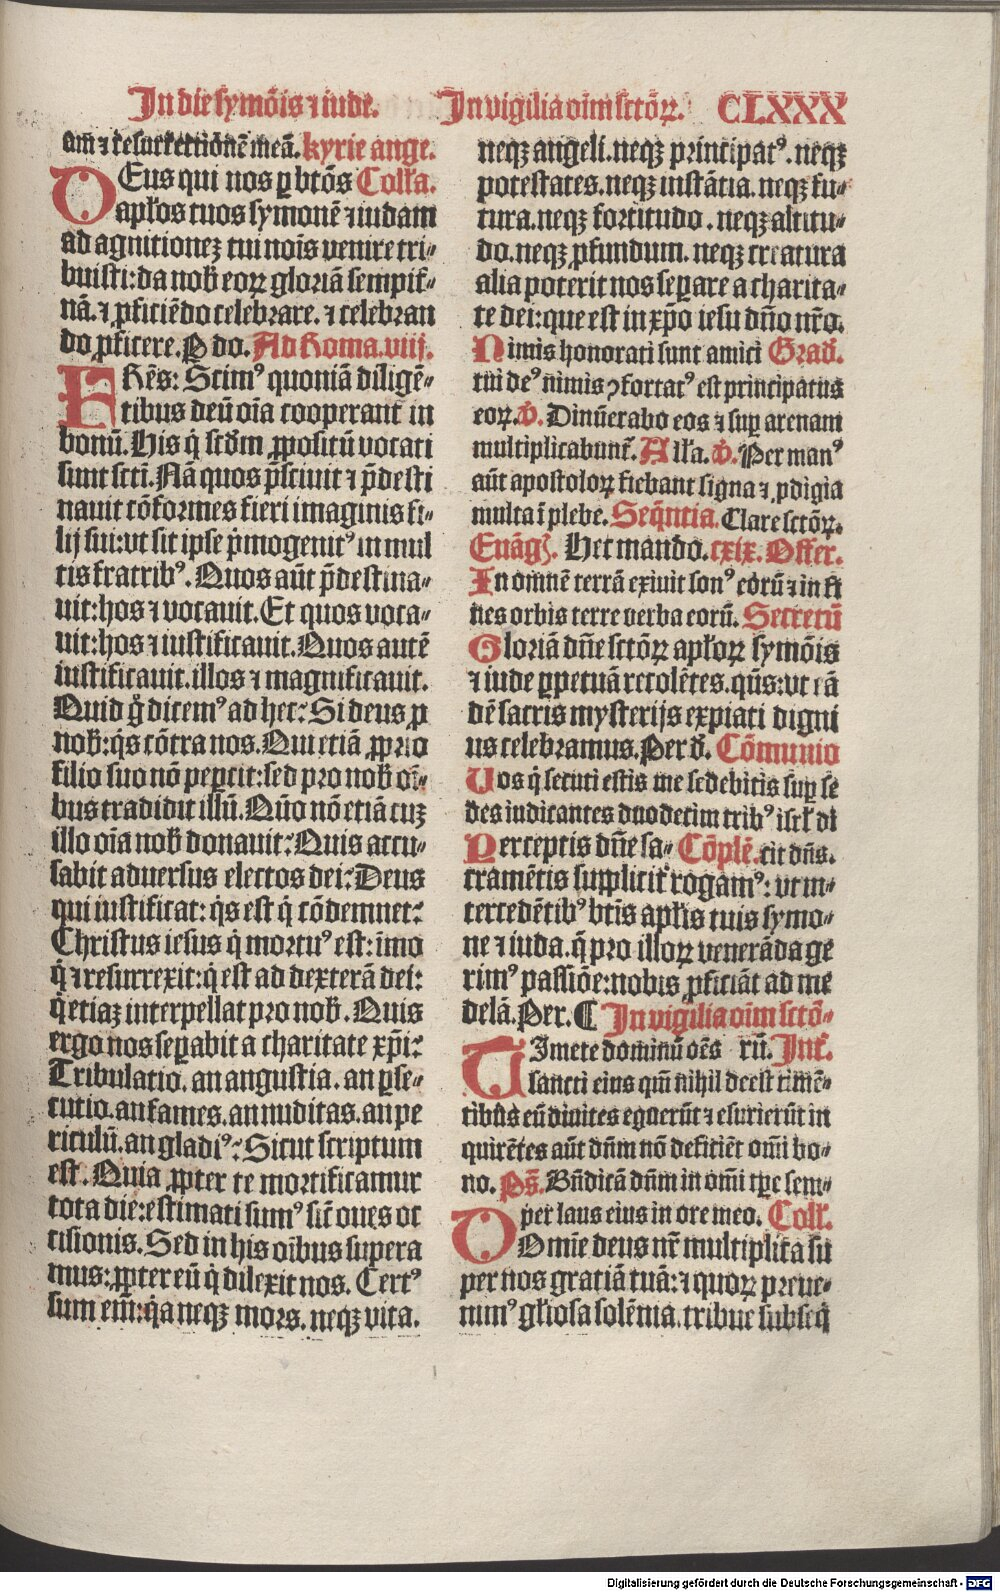 In die symōis ⁊ iude. In vigilia oīm sctōꝝ. CLXXX
am̄ ⁊ resurrectionē meā. kyrie ange.
DEus qui nos ꝑ btōs Coll'a.
apl'os tuos symonē ⁊ iudam
ad agnitionez tui nois̄ venire tri-
buisti: da nob̄ eoꝝ gloriā sempit̄-
nā. ⁊ ꝓficiēdo celebrare. ⁊ celebran
do ꝓficere. P do. Ad Roma. viij.
FRēs: Scimꝰ quoniā diligē-
tibus deū oīa cooperant̄ in
bonū. His q̇ scd̄m ꝓpositū vocati
sunt sctī. Nā quos p̄sciuit ⁊ p̄desti
nauit cōformes fieri imaginis fi-
lij sui: vt sit ipse p̄mogenitꝰ in mul
tis fratribꝰ. Quos aūt p̄destina-
uit: hos ⁊ vocauit. Et quos voca-
uit: hos ⁊ iustificauit. Quos autē
iustificauit. illos ⁊ magnificauit.
Quid g̊ dicemꝰ ad hec: Si deus ꝓ
nob̄: q̇s cōtra nos. Qui etiā ꝓprio
filio suo nō pepcit: sed pro nob̄ oī-
bus tradidit illū. Quō nō etiā cuz
illo oīa nob̄ donauit: Quis accu-
sabit aduersus electos dei: Deus
qui iustificat: q̇s est q̇ cōdemnet:
Christus iesus q̇ mortuꝰ est: īmo
q̇ ⁊ resurrexit: q̇ est ad dexterā dei:
q̇ etiaz interpellat pro nob̄. Quis
ergo nos seꝑabit a charitate xp̄i:
Tribulatio. an angustia. an ꝑse-
cutio. an fames. an nuditas. an pe
riculū. an gladiꝰ: Sicut scriptum
est. Quia ꝓpter te mortificamur
tota die: estimati sumꝰ sic̄ oues oc
cisionis. Sed in his oībus supera
mus: ꝓpter eū q̇ dilexit nos. Certꝰ
sum em̄: q̇a neqꝫ mors. neqꝫ vita.
neqꝫ angeli. neqꝫ principatꝰ. neqꝫ
potestates. neqꝫ instātia. neqꝫ fu-
tura. neqꝫ fortitudo. neqꝫ altitu-
do. neqꝫ ꝓfundum. neqꝫ creatura
alia poterit nos seꝑare a charita-
te dei: que est in xp̄o iesu dn̄o nr̄o.
Nimis honorati sunt amici Grad̄.
tui deꝰ nimis ꝯfortatꝰ est principatus
eoꝝ. V̄. Dinūerabo eos ⁊ suꝑ arenam
multiplicabunt̄. All'a. V̄. Per manꝰ
aūt apostoloꝝ fiebant signa ⁊ ꝓdigia
multa ī plebe. Seq̄ntia. Clare sctōꝝ.
Euāgꝫ. Hec mando. cxix. Offer.
In omnē terrā exiuit sonꝰ eorū ⁊ in fi
nes orbis terre verba eorū. Secretū
Gloriā dn̄e sctōꝝ apl'oꝝ symōis
⁊ iude ꝑpetuā recolētes. q̄us: vt eā
dē sacris mysterijs expiati digni
us celebramus. Per d̄. Cōmunio
Vos q̇ secuti estis me sedebitis suꝑ se
des iudicantes duodecim tribꝰ isrl' di
Perceptis dn̄e sa- Cōplē. cit dn̄s.
cramētis supplicit̄ rogamꝰ: vt in-
tercedētibꝰ btīs apl'is tuis symo-
ne ⁊ iuda. q̄ pro illoꝝ venerāda ge
rimꝰ passiōe: nobis ꝓficiāt ad me
delā. Per. ¶ In vigilia oīm sctō-
TImete dominū oēs rū. Int̄.
sancti eius qm̄ nihil deest timē-
tibus eū diuites eguerūt ⁊ esurierūt in
quirētes aūt dn̄m nō deficiēt omī bo-
no. Ps̄. Bn̄dicā dn̄m in omī tꝑe sem-
per laus eius in ore meo. Coll'.
OMnīe deus nr̄ multiplica su
per nos gratiā tuā: ⁊ quoꝝ preue-
nimꝰ gl'iosa solēnia. tribue subseq̇
Digitalisierung gefördert durch die Deutsche Forschungsgemeinschaft - DFG